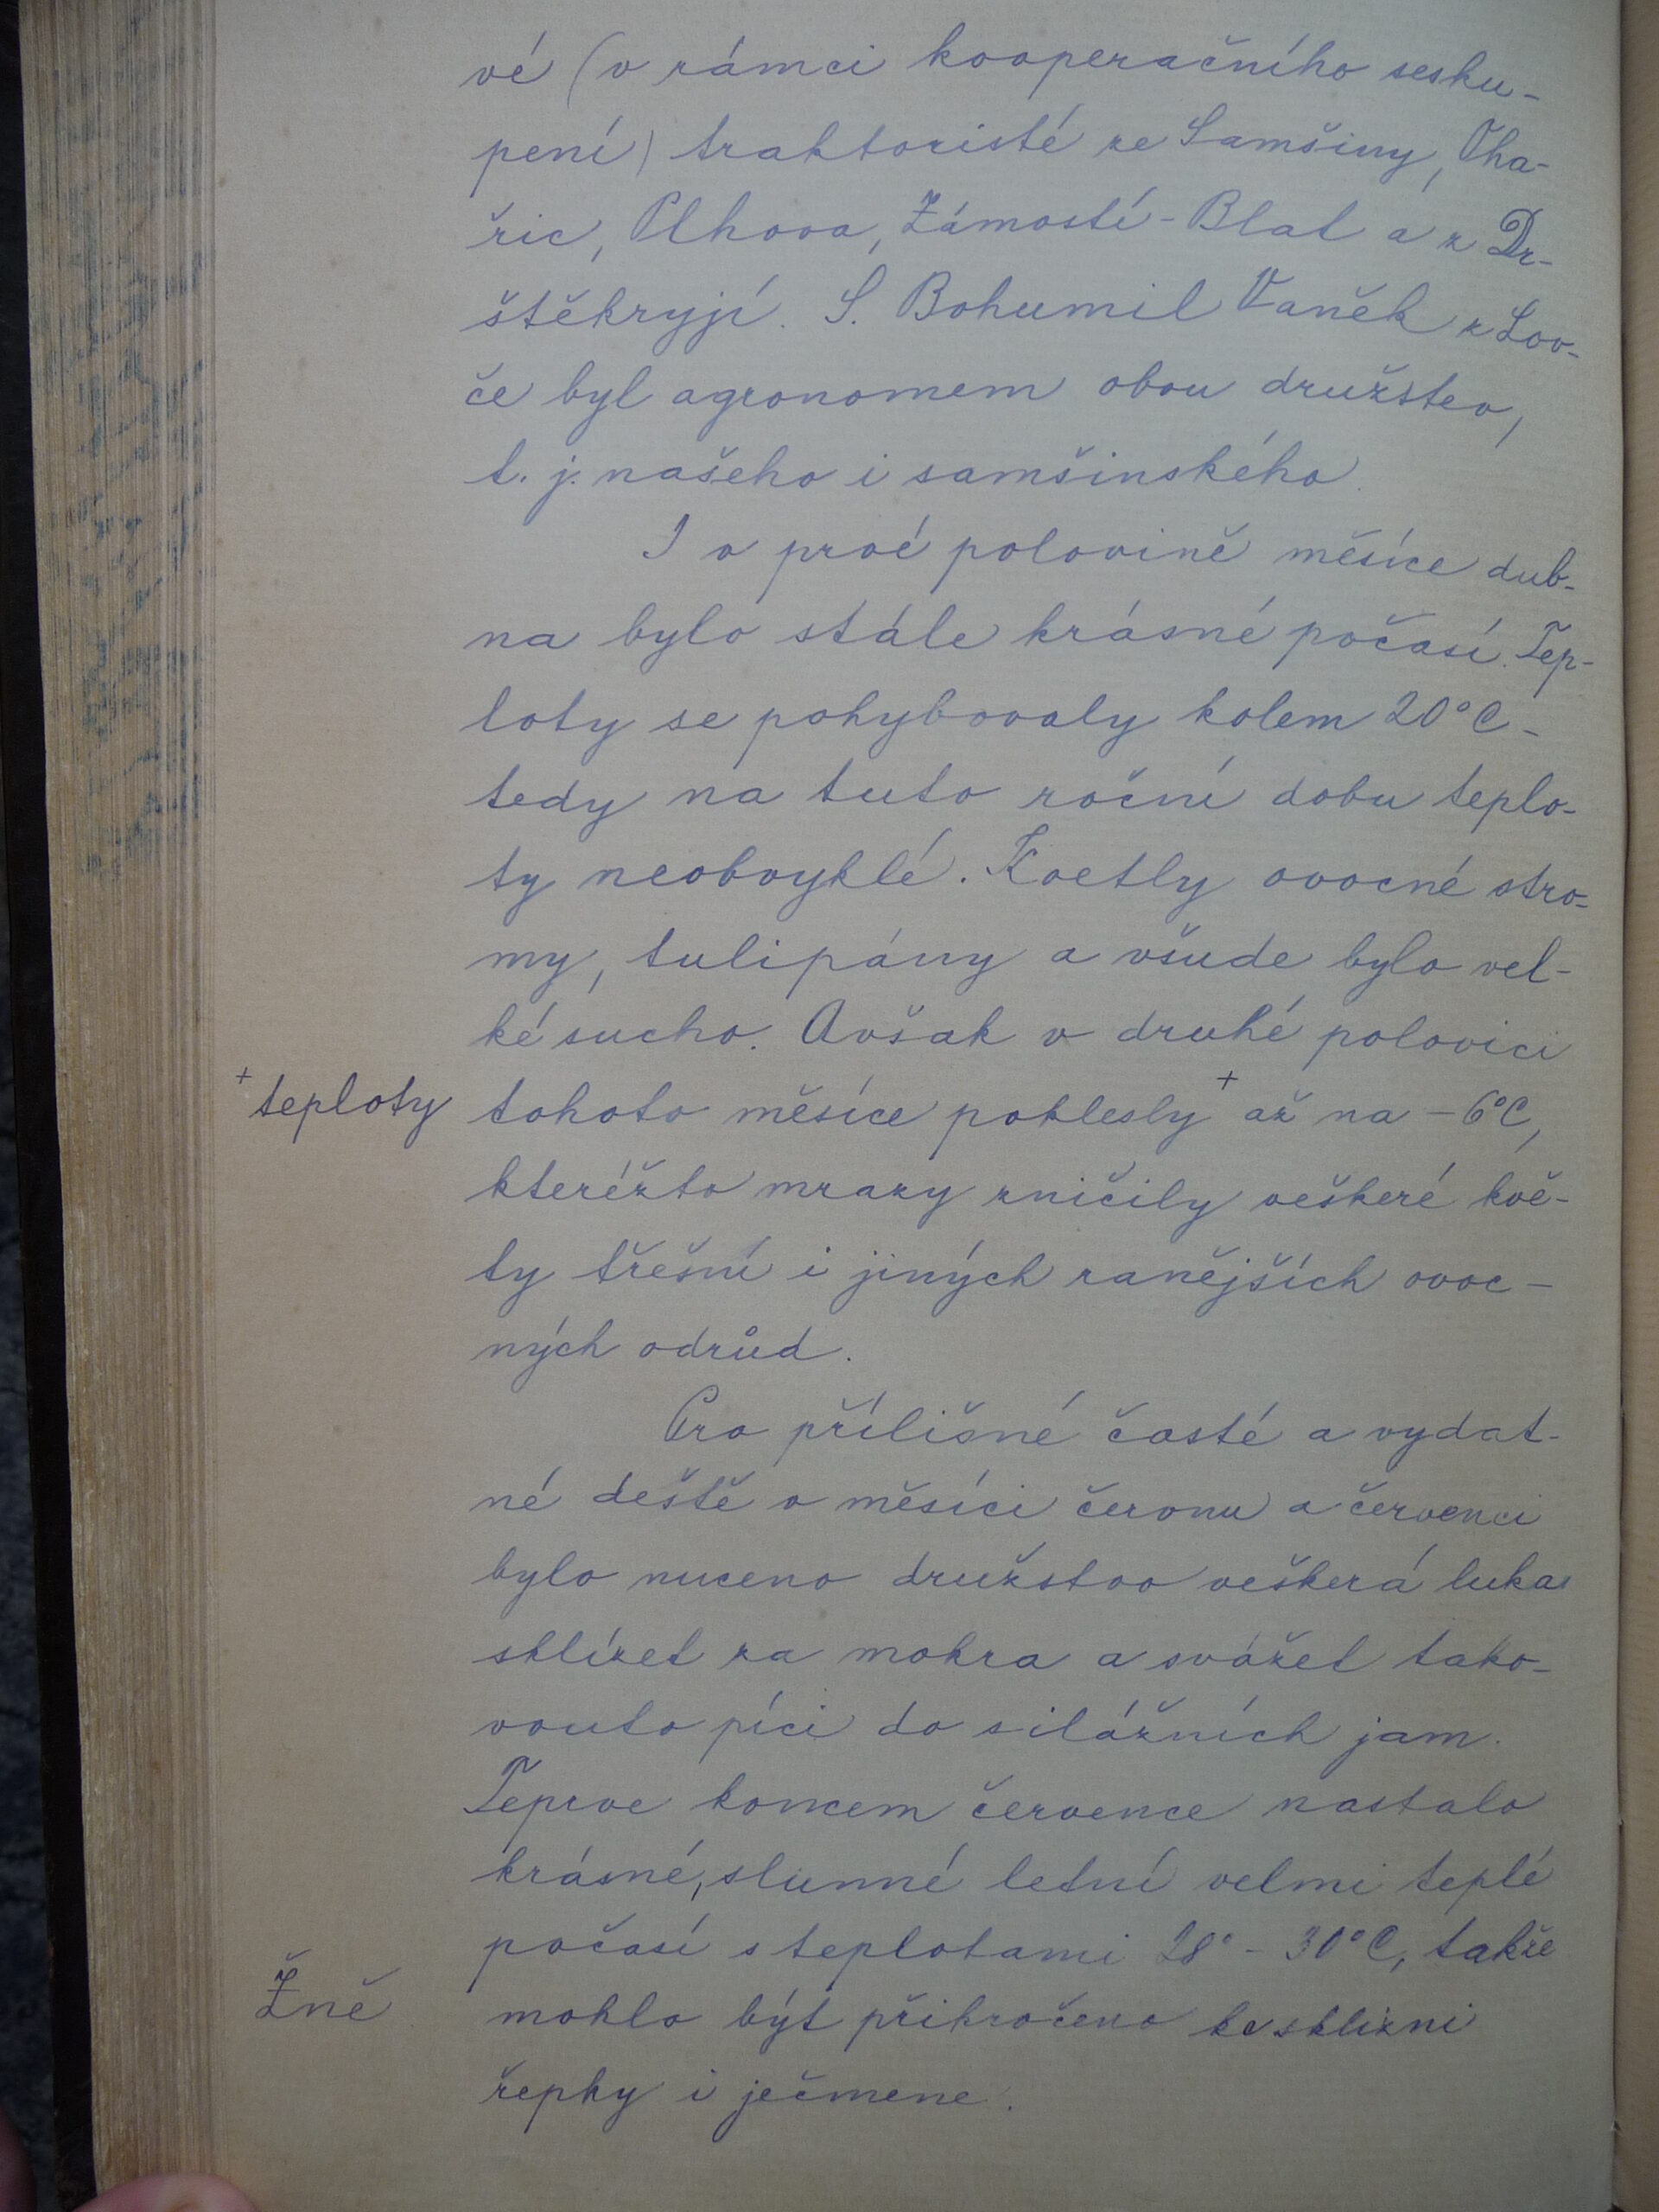 vé (v rámci kooperačního sesku-
pení) traktoristé ze Samšiny, Oha-
řic, Plhova, Zámostí-Blat a z Dr-
štěkryjí. S. Bohumil Vaněk z Lov-
če byl agronomem obou družstev,
t. j. našeho i samšinského.
I v prvé polovině měsíce dub-
na bylo stále krásné počasí. Tep-
loty se pohybovaly kolem 20°C -
tedy na tuto roční dobu teplo-
ty neobvyklé. Kvetly ovocné stro-
my, tulipány a všude bylo vel-
ké sucho. Avšak v druhé polovici
+ teploty
tohoto měsíce poklesly + až na -6°C,
kteréžto mrazy zničily veškeré kvě-
ty třešní i jiných ranějších ovoc-
ných odrůd.
Pro přílišné časté a vydat-
né deště v měsíci červnu a červenci
bylo nuceno družstvo veškerá luka
sklízet za mokra a svážet tako-
vouto píci do silážních jam.
Teprve koncem července nastalo
krásné, slunné letní velmi teplé
počasí s teplotami 28° - 30°C, takže
Žně
mohlo být přikročeno ke sklizni
řepky i ječmene.